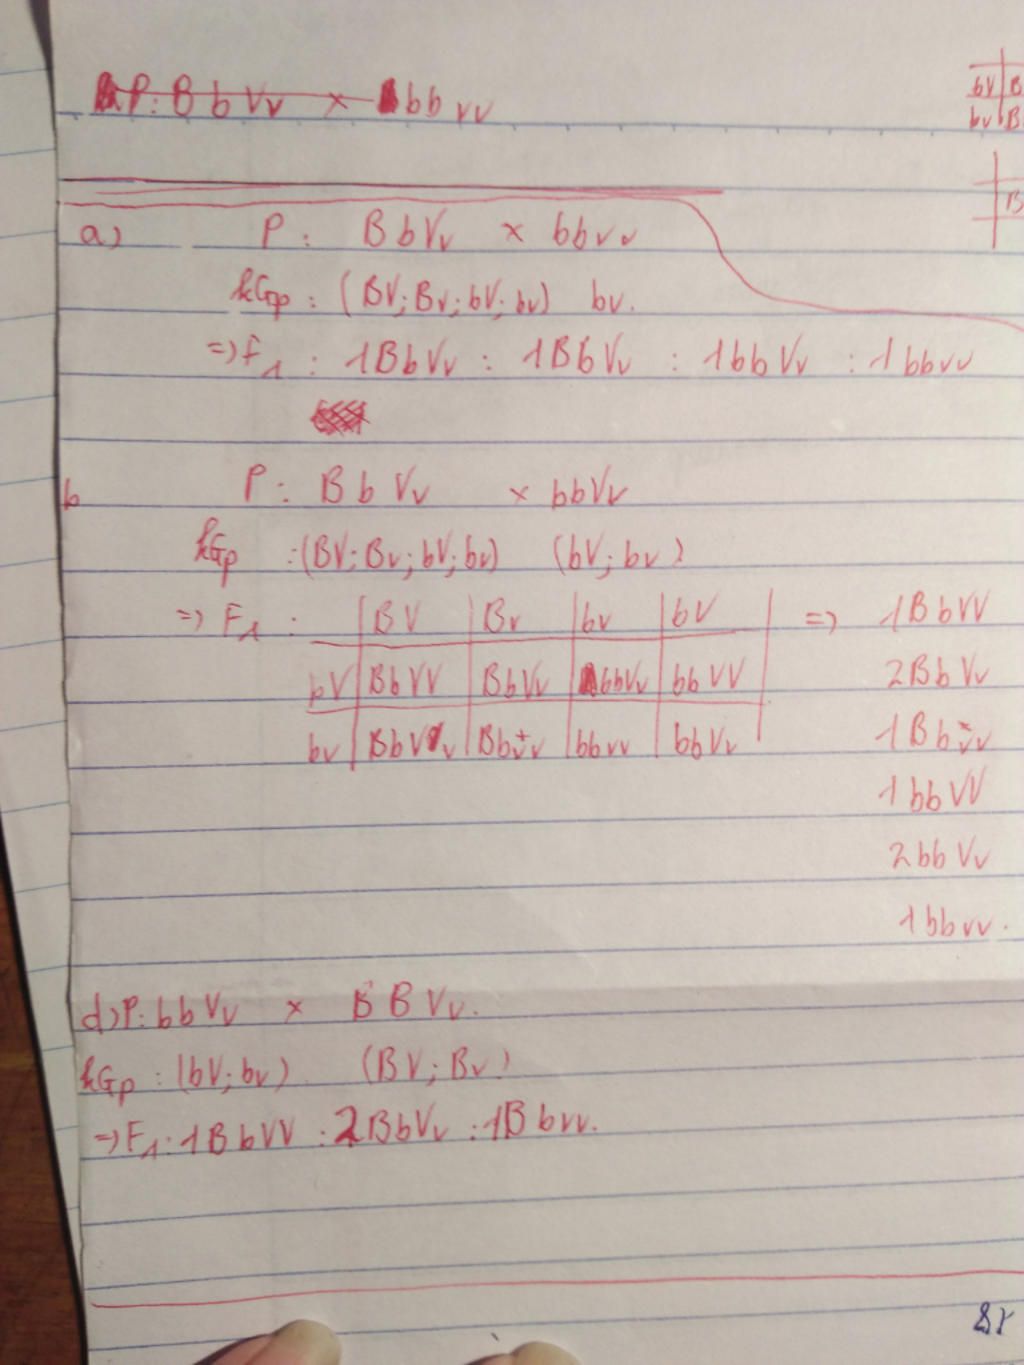 P: BbVv × bbvv
bV B
bv B
B
a) P: BbVv × bbvv
kGp: (BV; Bv; bV; bv) bv.
=> F1: 1BbVv : 1BbVv : 1bbVv : 1bbvv
b P: BbVv × bbVv
kGp: (BV; Bv; bV; bv) (bV; bv)
=> F1: BV Bv bv bV => 1BbVV
bV BbVV BbVv bbVv bbVV 2BbVv
bv BbVv Bbvv bbvv bbVv 1Bbvv
1bbVV
2bbVv
1bbvv.
d) P: bbVv × BBVv.
kGp: (bV; bv) (BV; Bv)
=> F1: 1BbVV : 2BbVv : 1Bbvv.